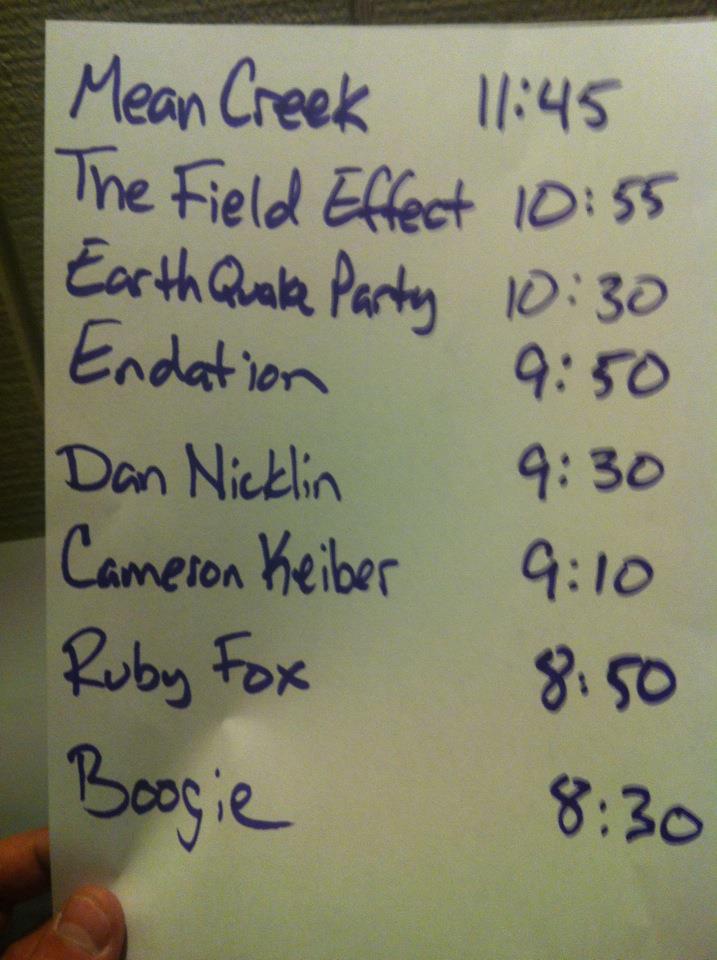 Mean Creek 11:45
The Field Effect 10:55
EarthQuake Party 10:30
Endation 9:50
Dan Nicklin 9:30
Cameron Keiber 9:10
Ruby Fox 8:50
Boogie 8:30